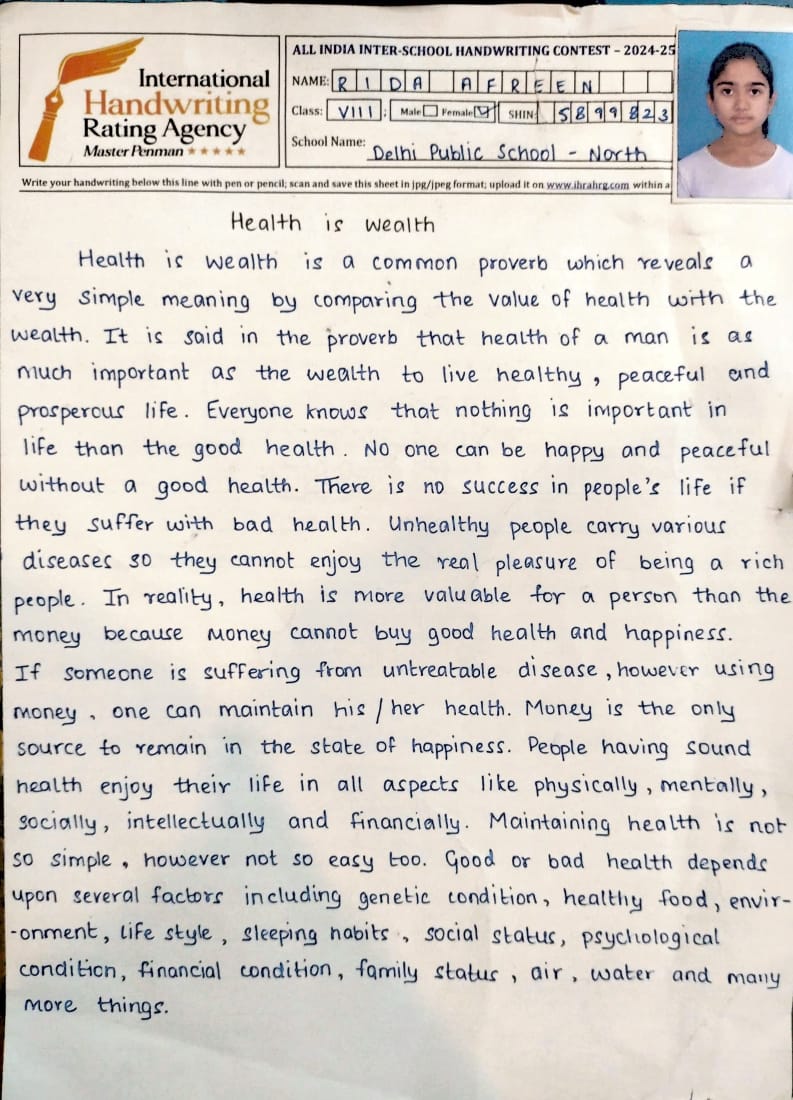 International
Handwriting
Rating Agency
Master Penman ★★★★★
ALL INDIA INTER-SCHOOL HANDWRITING CONTEST – 2024-25
NAME: RIDA AFREEN
Class: VIII Male Female SHIN: 5899823
School Name: Delhi Public School - North
Write your handwriting below this line with pen or pencil; scan and save this sheet in jpg/jpeg format; upload it on www.ihrahrg.com within a
Health is wealth
Health is wealth is a common proverb which reveals a
very simple meaning by comparing the value of health with the
wealth. It is said in the proverb that health of a man is as
much important as the wealth to live healthy, peaceful and
prosperous life. Everyone knows that nothing is important in
life than the good health. No one can be happy and peaceful
without a good health. There is no success in people's life if
they suffer with bad health. Unhealthy people carry various
diseases so they cannot enjoy the real pleasure of being a rich
people. In reality, health is more valuable for a person than the
money because money cannot buy good health and happiness.
If someone is suffering from untreatable disease, however using
money, one can maintain his/her health. Money is the only
source to remain in the state of happiness. People having sound
health enjoy their life in all aspects like physically, mentally,
socially, intellectually and financially. Maintaining health is not
so simple, however not so easy too. Good or bad health depends
upon several factors including genetic condition, healthy food, envir-
-onment, life style, sleeping habits, social status, psychological
condition, financial condition, family status, air, water and many
more things.